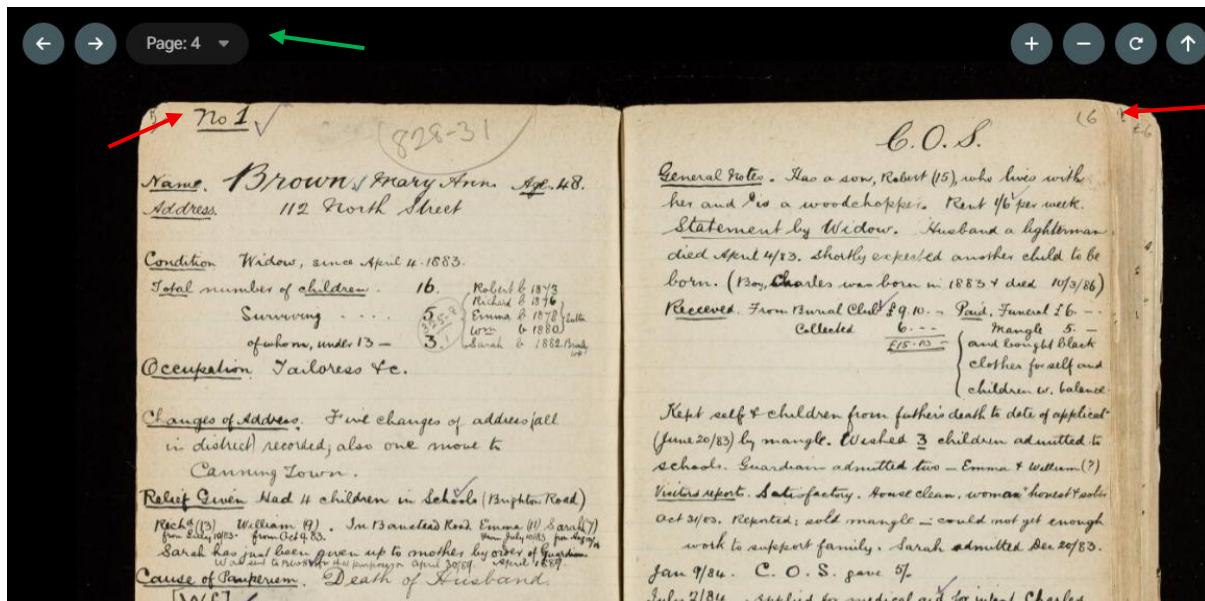 Page: 4
5
No 1
(828-31
Name. Brown, Mary Ann. Age. 48.
Address. 112 North Street
Condition Widow, since April 4. 1883.
Total number of children. 16.
Robert b 1873
Richard b 1876
Surviving . . . . 5
Emma b 1878
Wm b 1880
of whom, under 13 — 3.
Sarah b 1882
Occupation Tailoress &c.
Changes of Address. Five changes of address (all
in district) recorded; also one move to
Canning Town.
Relief Given Had 4 children in Schools (Brighton Road)
Richd (13) William (9). In Banstead Road Emma (11) Sarah (7)
from July 10/83. from Oct 9. 83. from July 10/83
Sarah has just been given up to mother by order of Guardian
April 1889.
Cause of Pauperism. Death of Husband.
(6
C.O.S.
General Notes. Has a son, Robert (15), who lives with
her and is a woodchopper. Rent 1/6 per week.
Statement by Widow. Husband a lighterman
died April 4/83. Shortly expected another child to be
born. (Boy, Charles was born in 1883 & died 10/3/86)
Received. From Burial Club £9.10. - Paid. Funeral £6 - -
Collected 6. - - Mangle 5. -
£15.10 - and bought black
clothes for self and
children w. balance.
Kept self & children from father's death to date of applicatn
(June 20/83) by mangle. Wished 3 children admitted to
schools. Guardian admitted two — Emma & William (?)
Visitors report. Satisfactory. House clean, woman honest & sober
Oct 31/83. Reported; sold mangle — could not get enough
work to support family. Sarah admitted Dec 20/83.
Jan 9/84. C.O.S. gave 5/-
July 2/84. applied for medical aid for infant Charles